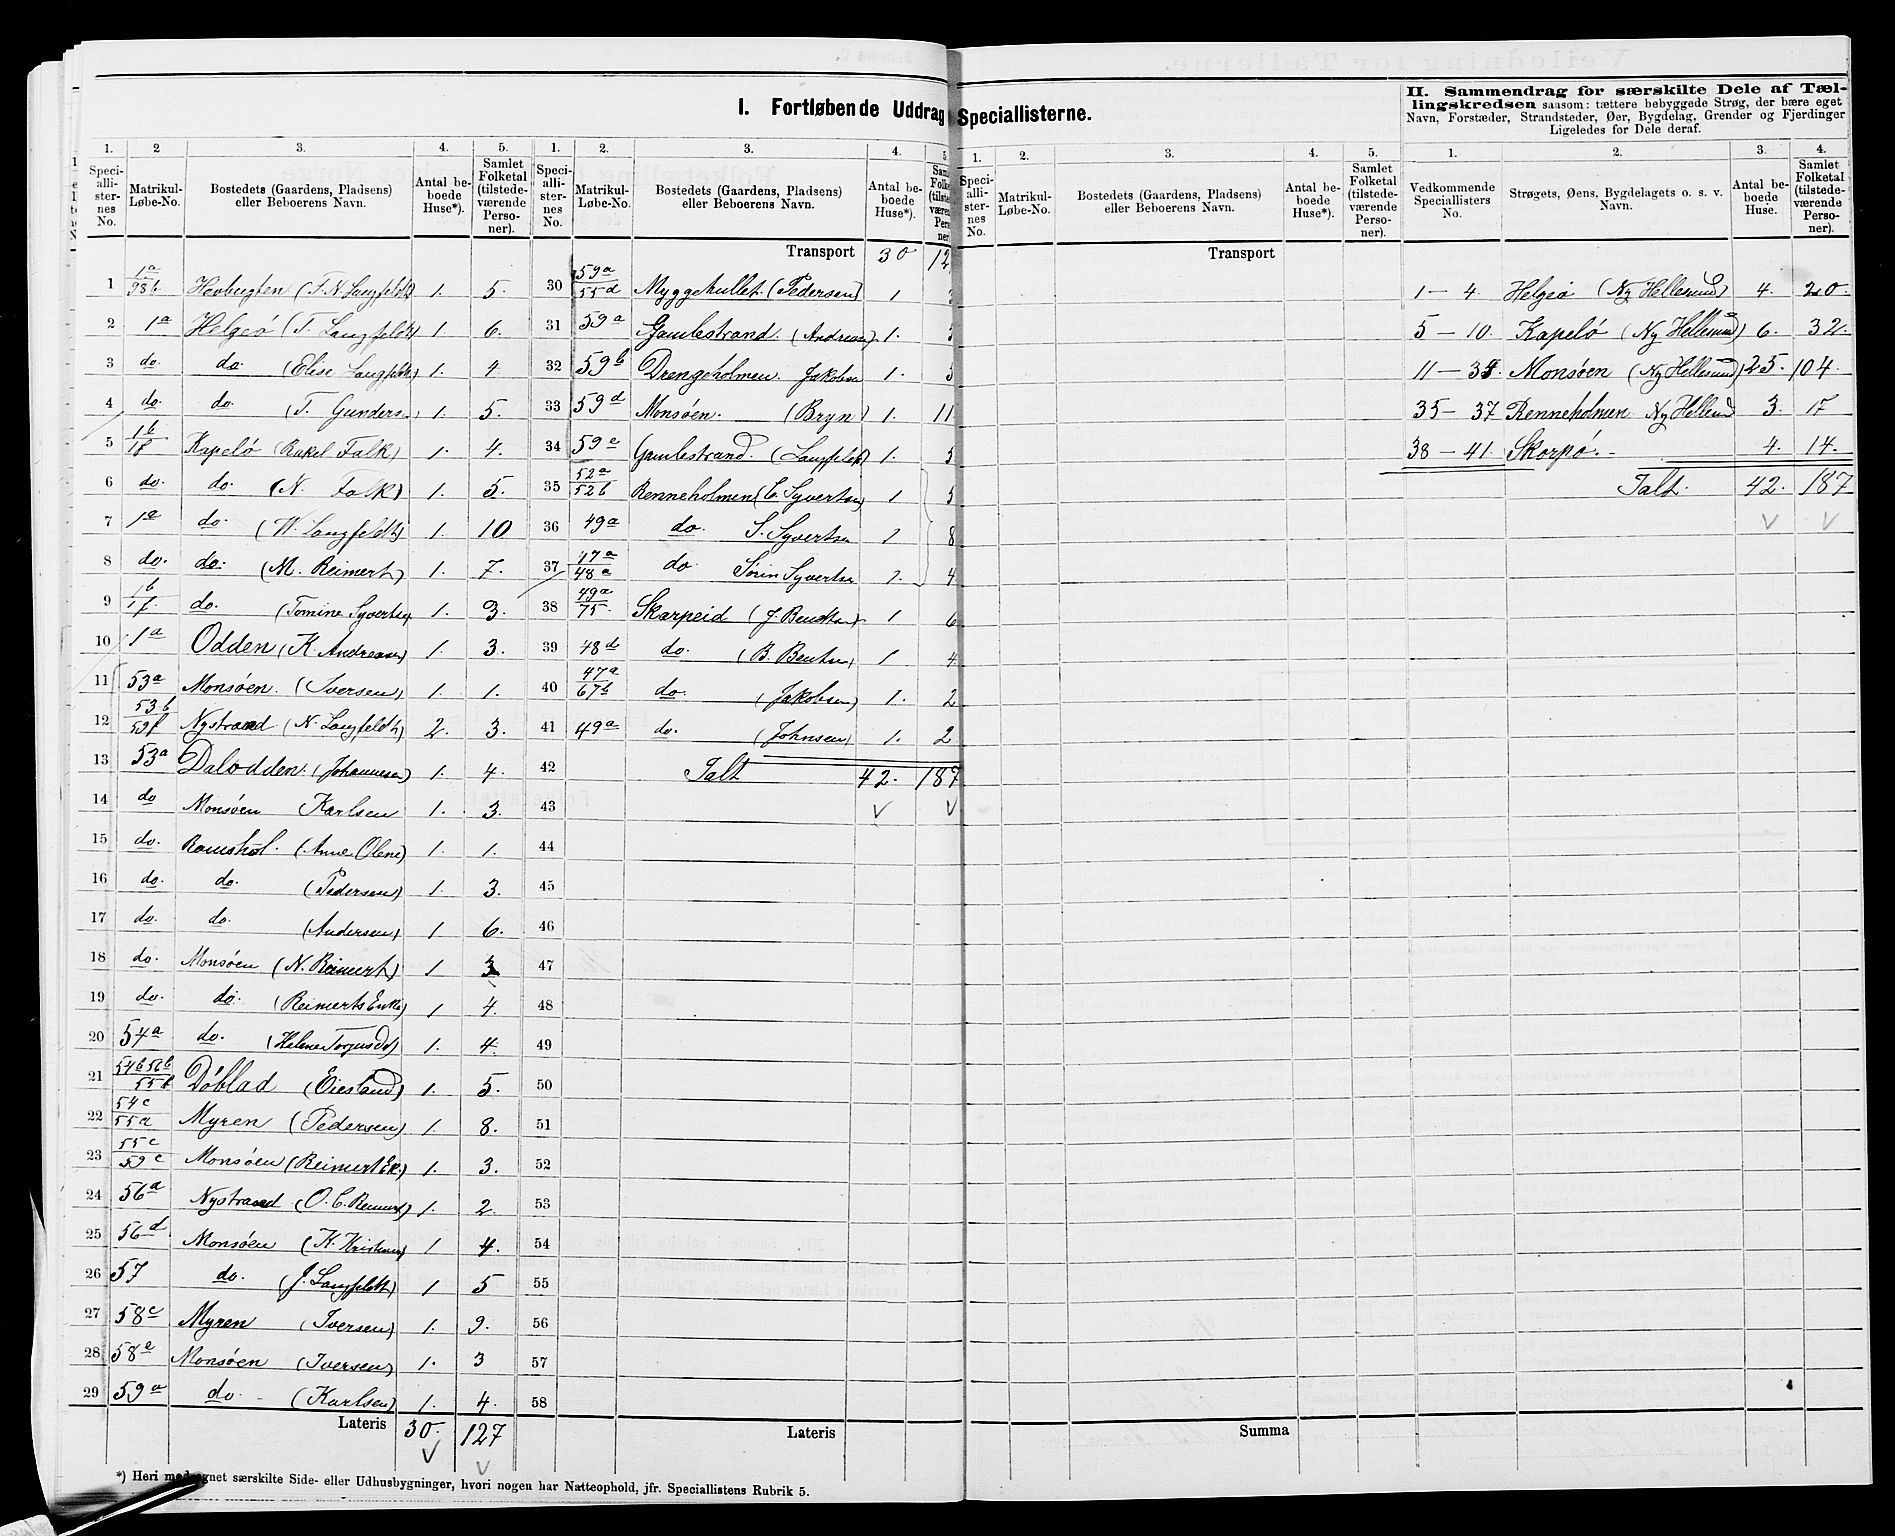 I. Fortløbende Uddrag Speciallisterne.
II. Sammendrag for særskilte Dele af Tæl-
lingskredsen saasom: tættere bebyggede Strøg, der bære eget
Navn, Forstæder, Strandsteder, Øer, Bygdelag, Grender og Fjerdinger
Ligeledes for Dele deraf.
1. Speci-alli-ster-nes No. 2 Matrikul-Løbe-No. 3. Bostedets (Gaardens, Pladsens) eller Beboerens Navn. 4. Antal be-boede Huse*). 5. Samlet Folketal (tilstede-værende Perso-ner).
1 1a/98b Havbugten (T. N. Langfeldt) 1. 5.
2 1a Helgeö (T. Langfeldt) 1 6.
3 do. do. (Elise Langfeldt) 1. 4.
4 do. do. (T. Gunders) 1. 5.
5 1b/18 Kapelö (Rakel Falk) 1. 4.
6 do. do. (N. Falk) 1. 5.
7 1a do. (W. Langfeldt) 1. 10
8 do. do. (M. Reimert) 1. 7.
9 1b/17. do. (Tomine Syverts) 1. 3.
10 1a Odden (K. Andreasen) 1. 3.
11 53a Monsöen. (Iversen) 1. 1.
12 53b/59f Nystrand (N. Langfeldt) 2. 3.
13 53a Dalodden. (Johannesen) 1. 4.
14 do Monsöen Karlsen 1. 3.
15 do. Ramshol. (Anne Olene) 1. 1.
16 do. do. (Pedersen) 1. 3.
17 do. do. (Andersen) 1 6.
18 do. Monsöen (N. Reimert) 1 3
19 do. do. (Reimerts Enke) 1 4.
20 54a do. (Helene Torjusd) 1. 4.
21 54b 56b/55f Döblad (Eiesland) 1. 5.
22 54c/55a Myren (Pedersen) 1. 8.
23 55c/59c Monsöen (Reimert Ek.) 1. 3.
24 56a Nystrand (O. C. Reimert) 1. 2.
25 56d Monsöen (K. Kristens) 1 4.
26 57 do. (J. Langfeldt) 1 5
27 58c Myren Iversen) 1. 9.
28 58e Monsöen (Iversen) 1. 3
29 59a do. - (Karlsen) 1. 4.
Lateris 30. 127
*) Heri med egnet særskilte Side- eller Udhusbygninger, hvori nogen har Natteophold, jfr. Speciallistens Rubrik 5.
1. Speci-alli-ster-nes No. 2. Matrikul-Løbe-No. 3. Bostedets (Gaardens, Pladsens) eller Beboerens Navn. 4. Antal be-boede Huse*). 5.
Transport 30 12
30 59a/55d Myggehullet. (Pedersen) 1
31 59a Gamlestrand. (Andreasen) 1.
32 59b Drengeholmen. Jakobsen 1.
33 59d Monsöen. (Bryn) 1. 11
34 59e Gamlestrand. (Langfeldt) 1.
35 52a/52b Renneholmen (C. Syvertsen) 1 5
36 49a do. S. Syvertsen 1 8
37 47a/48c do Sörin Syvertsen 1. 4
38 49a/75. Skarpeid (J. Bendtsen) 1 6
39 48d do. (B. Bentsen) 1 4
40 47a/67b do. (Jakobsen) 1. 2
41 49a do. (Johnsen) 1. 2
42 Ialt 42. 187
43
44
45
46
47
48
49
50
51
52
53
54
55
56
57
58
Lateris
1. Speci-alli-ster-nes No. 2. Matrikul-Løbe-No. 3. Bostedets (Gaardens, Pladsens) eller Beboerens Navn. 4. Antal be-boede Huse*). 5. Samlet Folketal (tilstede-værende Perso-ner).
Transport
Summa
1. Vedkommende Speciallisters No. 2. Strøgets, Øens, Bygdelagets o. s. v. Navn. 3. Antal be-boede Huse. 4. Samlet Folketal (tilstede-værende Perso-ner).
1 - 4. Helgeö (Ny Hellesund) 4. 20.
5 - 10. Kapelö (Ny Hellesund) 6. 32.
11 - 34. Monsöen (Ny Hellesund) 25. 104.
35 - 37 Renneholmen Ny Hellesund 3. 17
38 - 41. Skorpö. - 4. 14.
Ialt. 42. 187